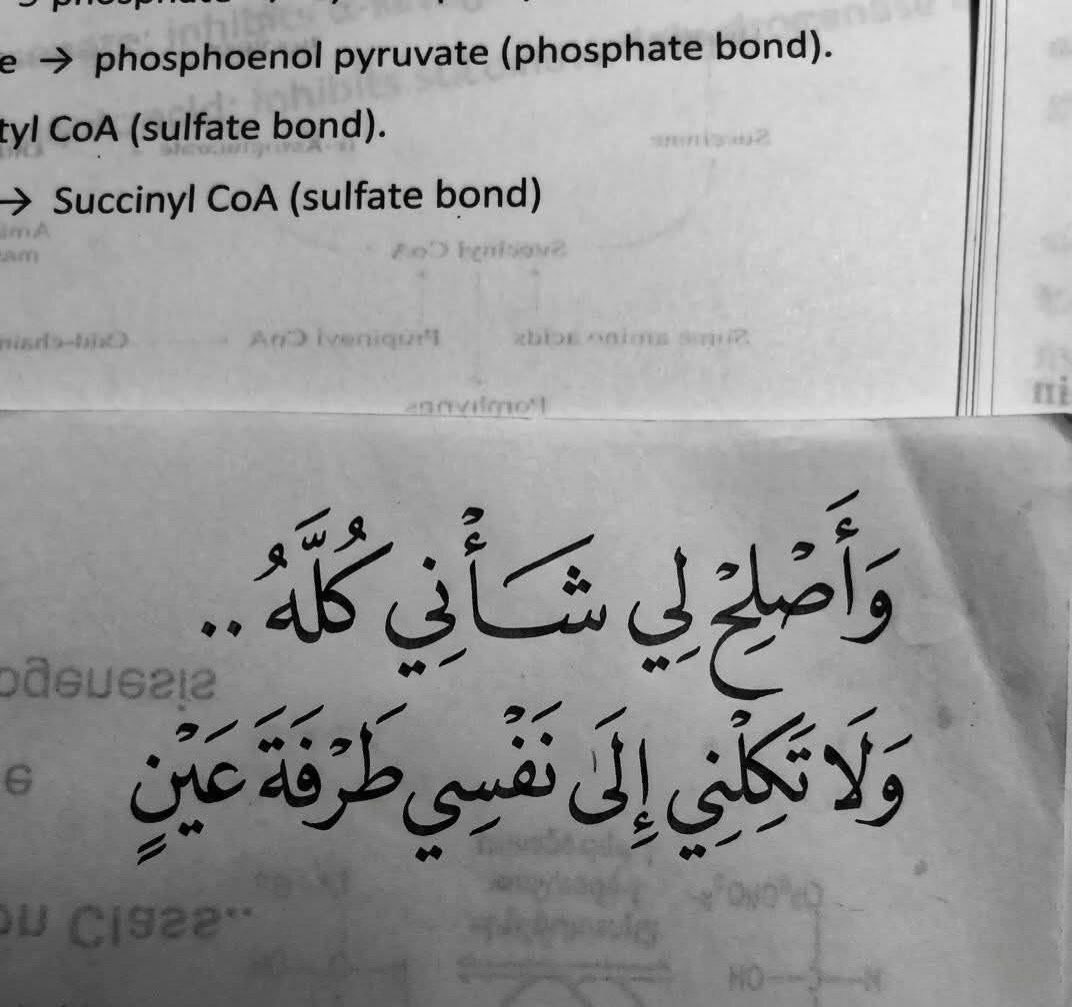 e → phosphoenol pyruvate (phosphate bond).
tyl CoA (sulfate bond).
→ Succinyl CoA (sulfate bond)
وَأَصْلِحْ لِي شَأْنِي كُلَّهُ ..
وَلَا تَكِلْنِي إِلَىٰ نَفْسِي طَرْفَةَ عَيْنٍ